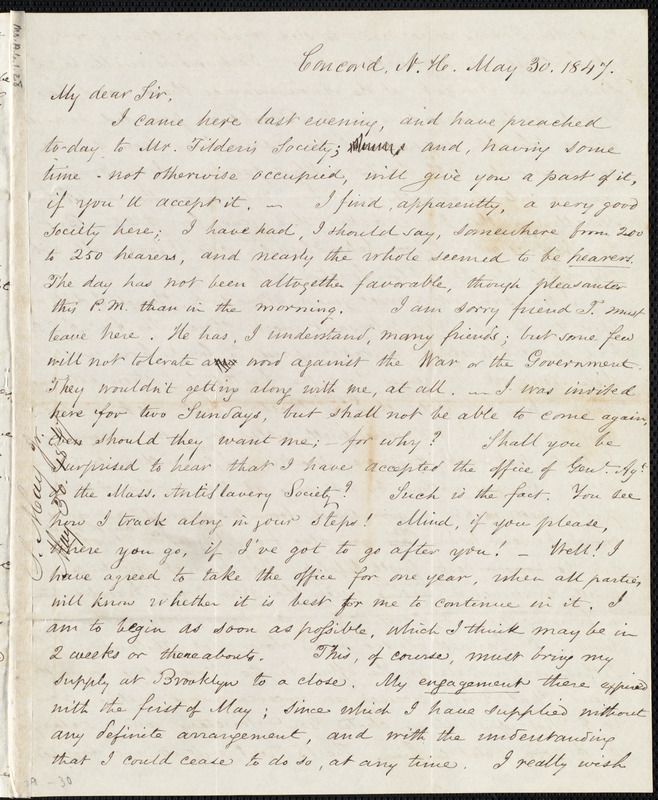 Concord, N. H. May 30. 1847.
My dear Sir,
I came here last evening, and have preached
to-day to Mr. Tilden's Society; and, having some
time - not otherwise occupied, will give you a part of it,
if you'll accept it. — I find, apparently, a very good
Society here; I have had, I should say, somewhere from 200
to 250 hearers, and nearly the whole seemed to be hearers.
The day has not been altogether favorable, though pleasanter
this P.M. than in the morning. I am sorry friend T. must
leave here. He has, I understand, many friends; but some few
will not tolerate a word against the War or the Government.
They wouldn't getting along with me, at all. — I was invited
here for two Sundays, but shall not be able to come again,
even should they want me; - for why? Shall you be
surprised to hear that I have accepted the office of Genl. Agt.
of the Mass. Antislavery Society? Such is the fact. You see
how I track along in your steps! Mind, if you please,
where you go, if I've got to go after you! — Well! I
have agreed to take the office for one year, when all parties
will know whether it is best for me to continue in it. I
am to begin as soon as possible, which I think may be in
2 weeks or thereabouts. This, of course, must bring my
supply at Brooklyn to a close. My engagement there expired
with the first of May; since which I have supplied without
any definite arrangement, and with the understanding
that I could cease to do so, at any time. I really wish
S. May Jr.
May 30. 1847